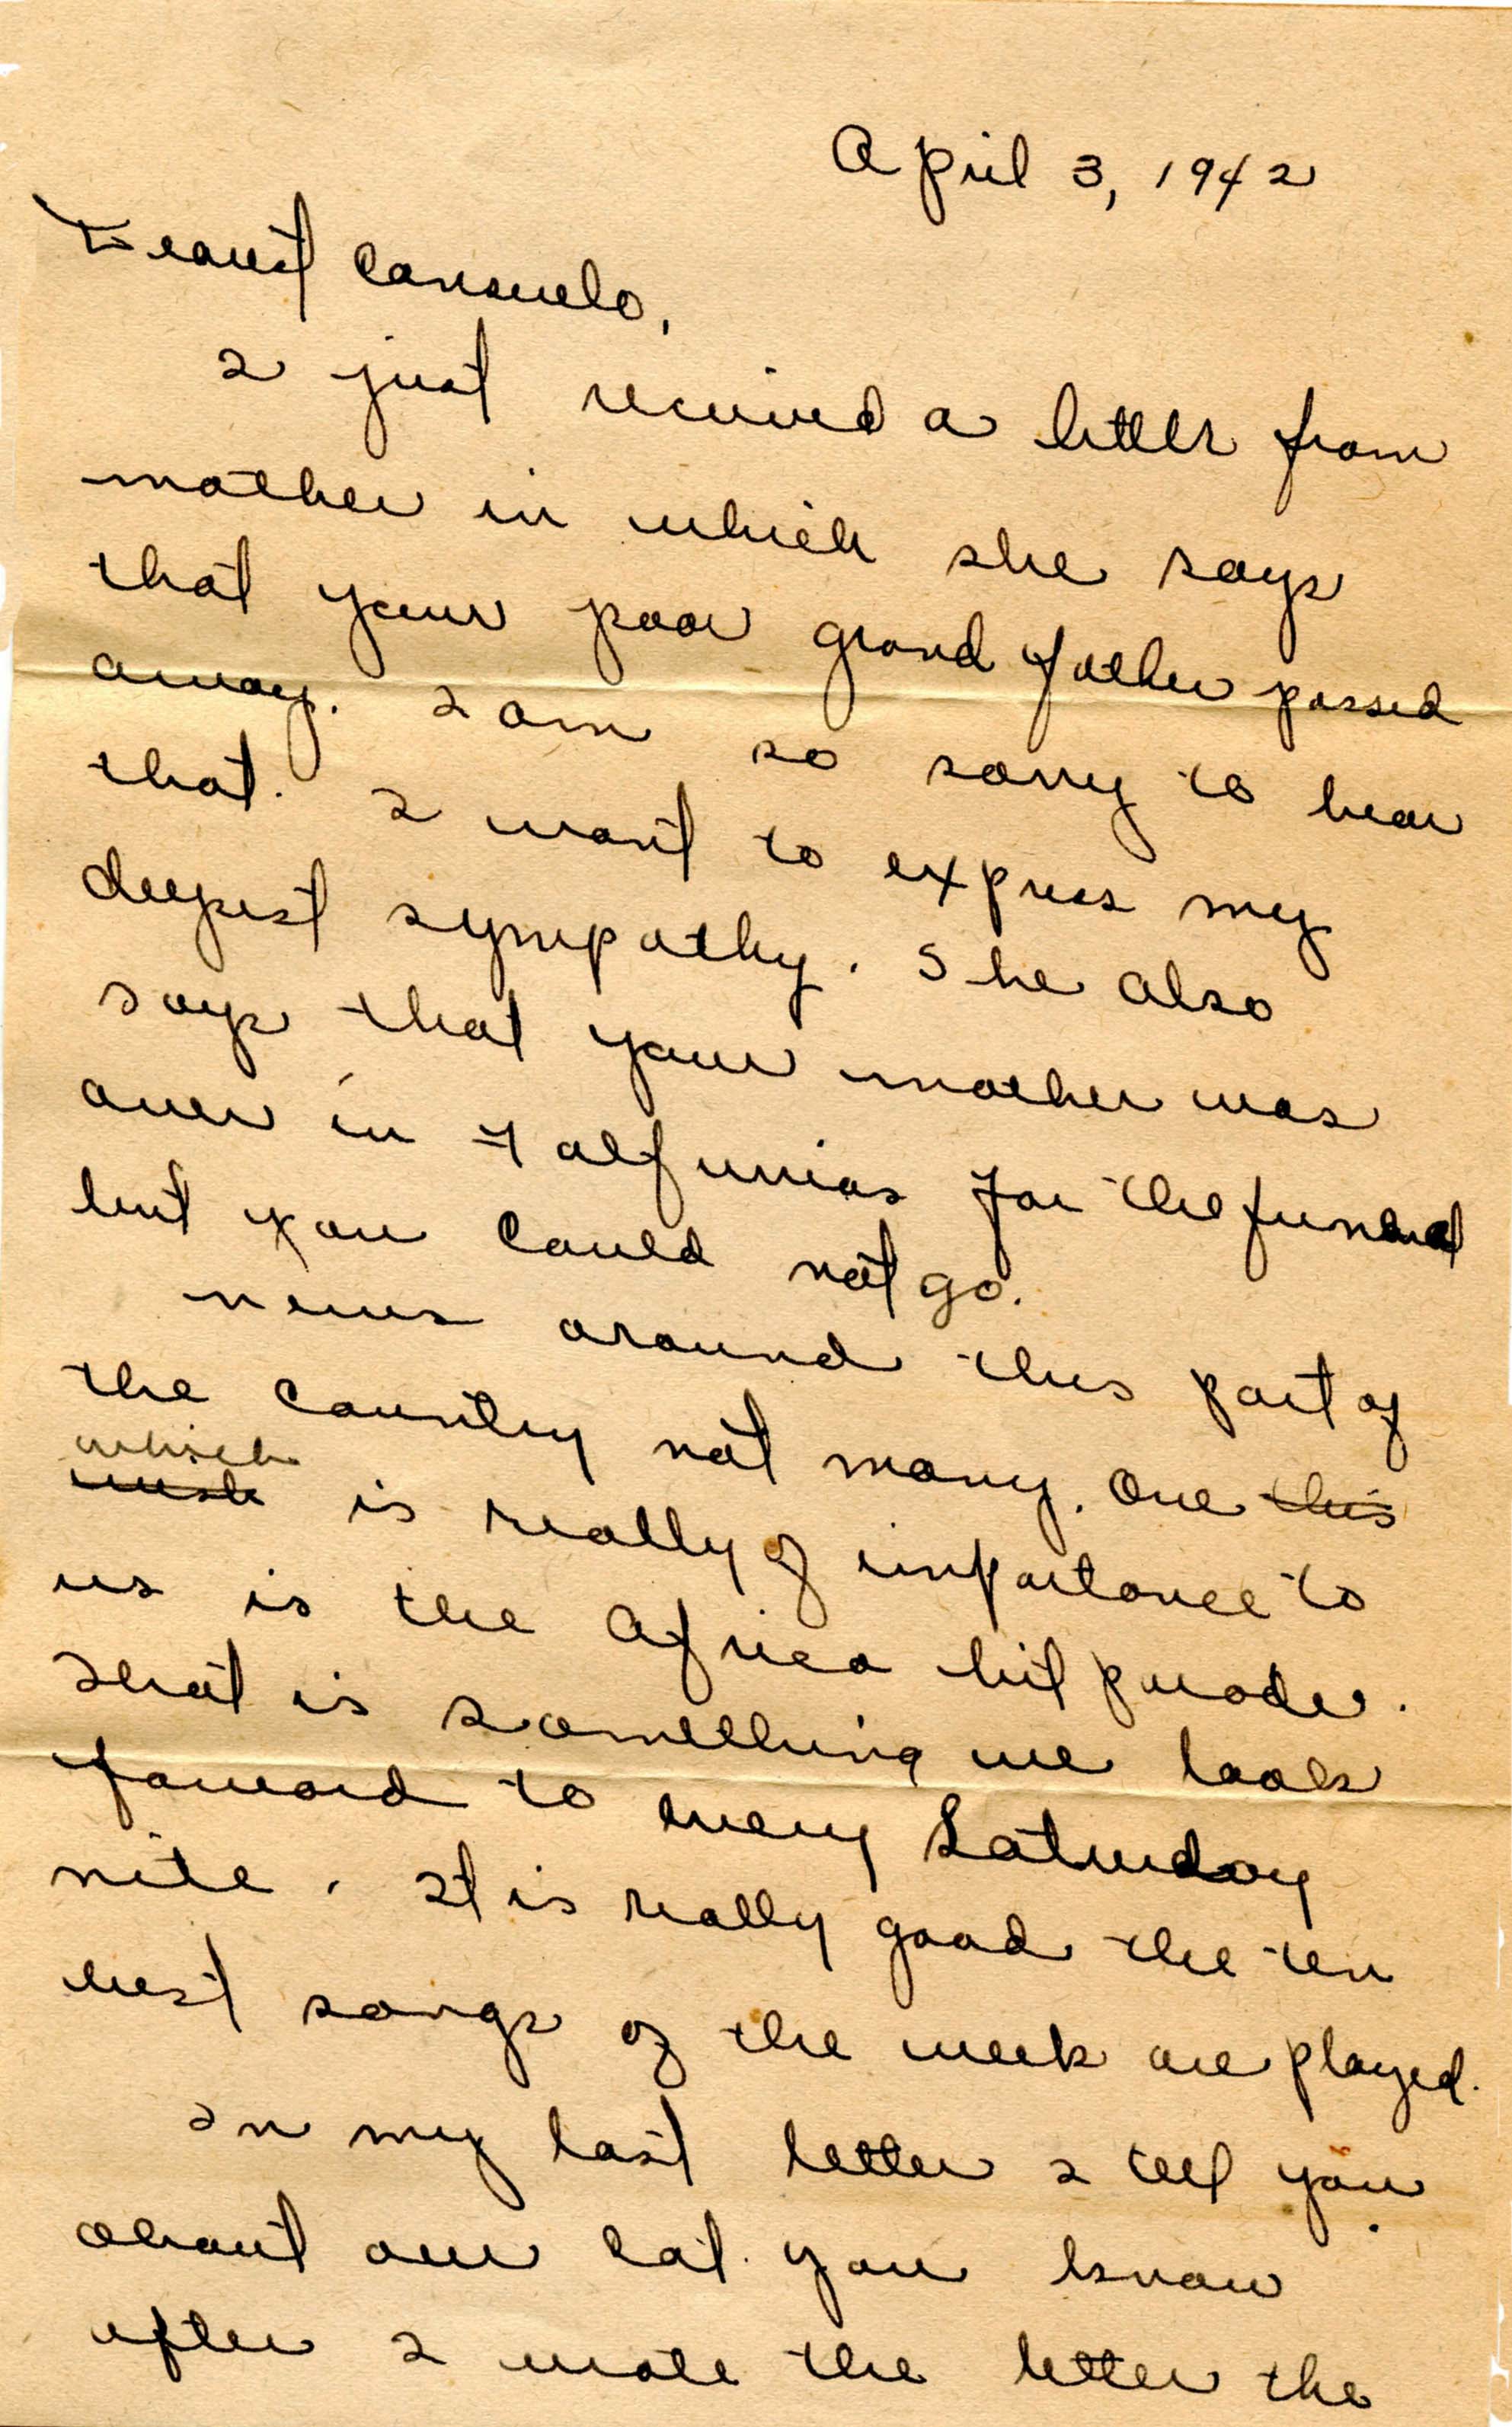 April 3, 1942
Dearest Consuelo,
I just received a letter from
mother in which she says
that your poor grand father passed
away. I am so sorry to hear
that. I want to express my
deepest sympathy. She also
says that your mother was
over in Falfurrias for the funeral
but you could not go.
news around this part of
the country not many. One this
which
is really of importance to
us is the Africa hit parade.
That is something we look
forward to every Saturday
nite. It is really good the ten
best songs of the week are played.
In my last letter I tell you
about our cat. you know
after I wrote the letter the